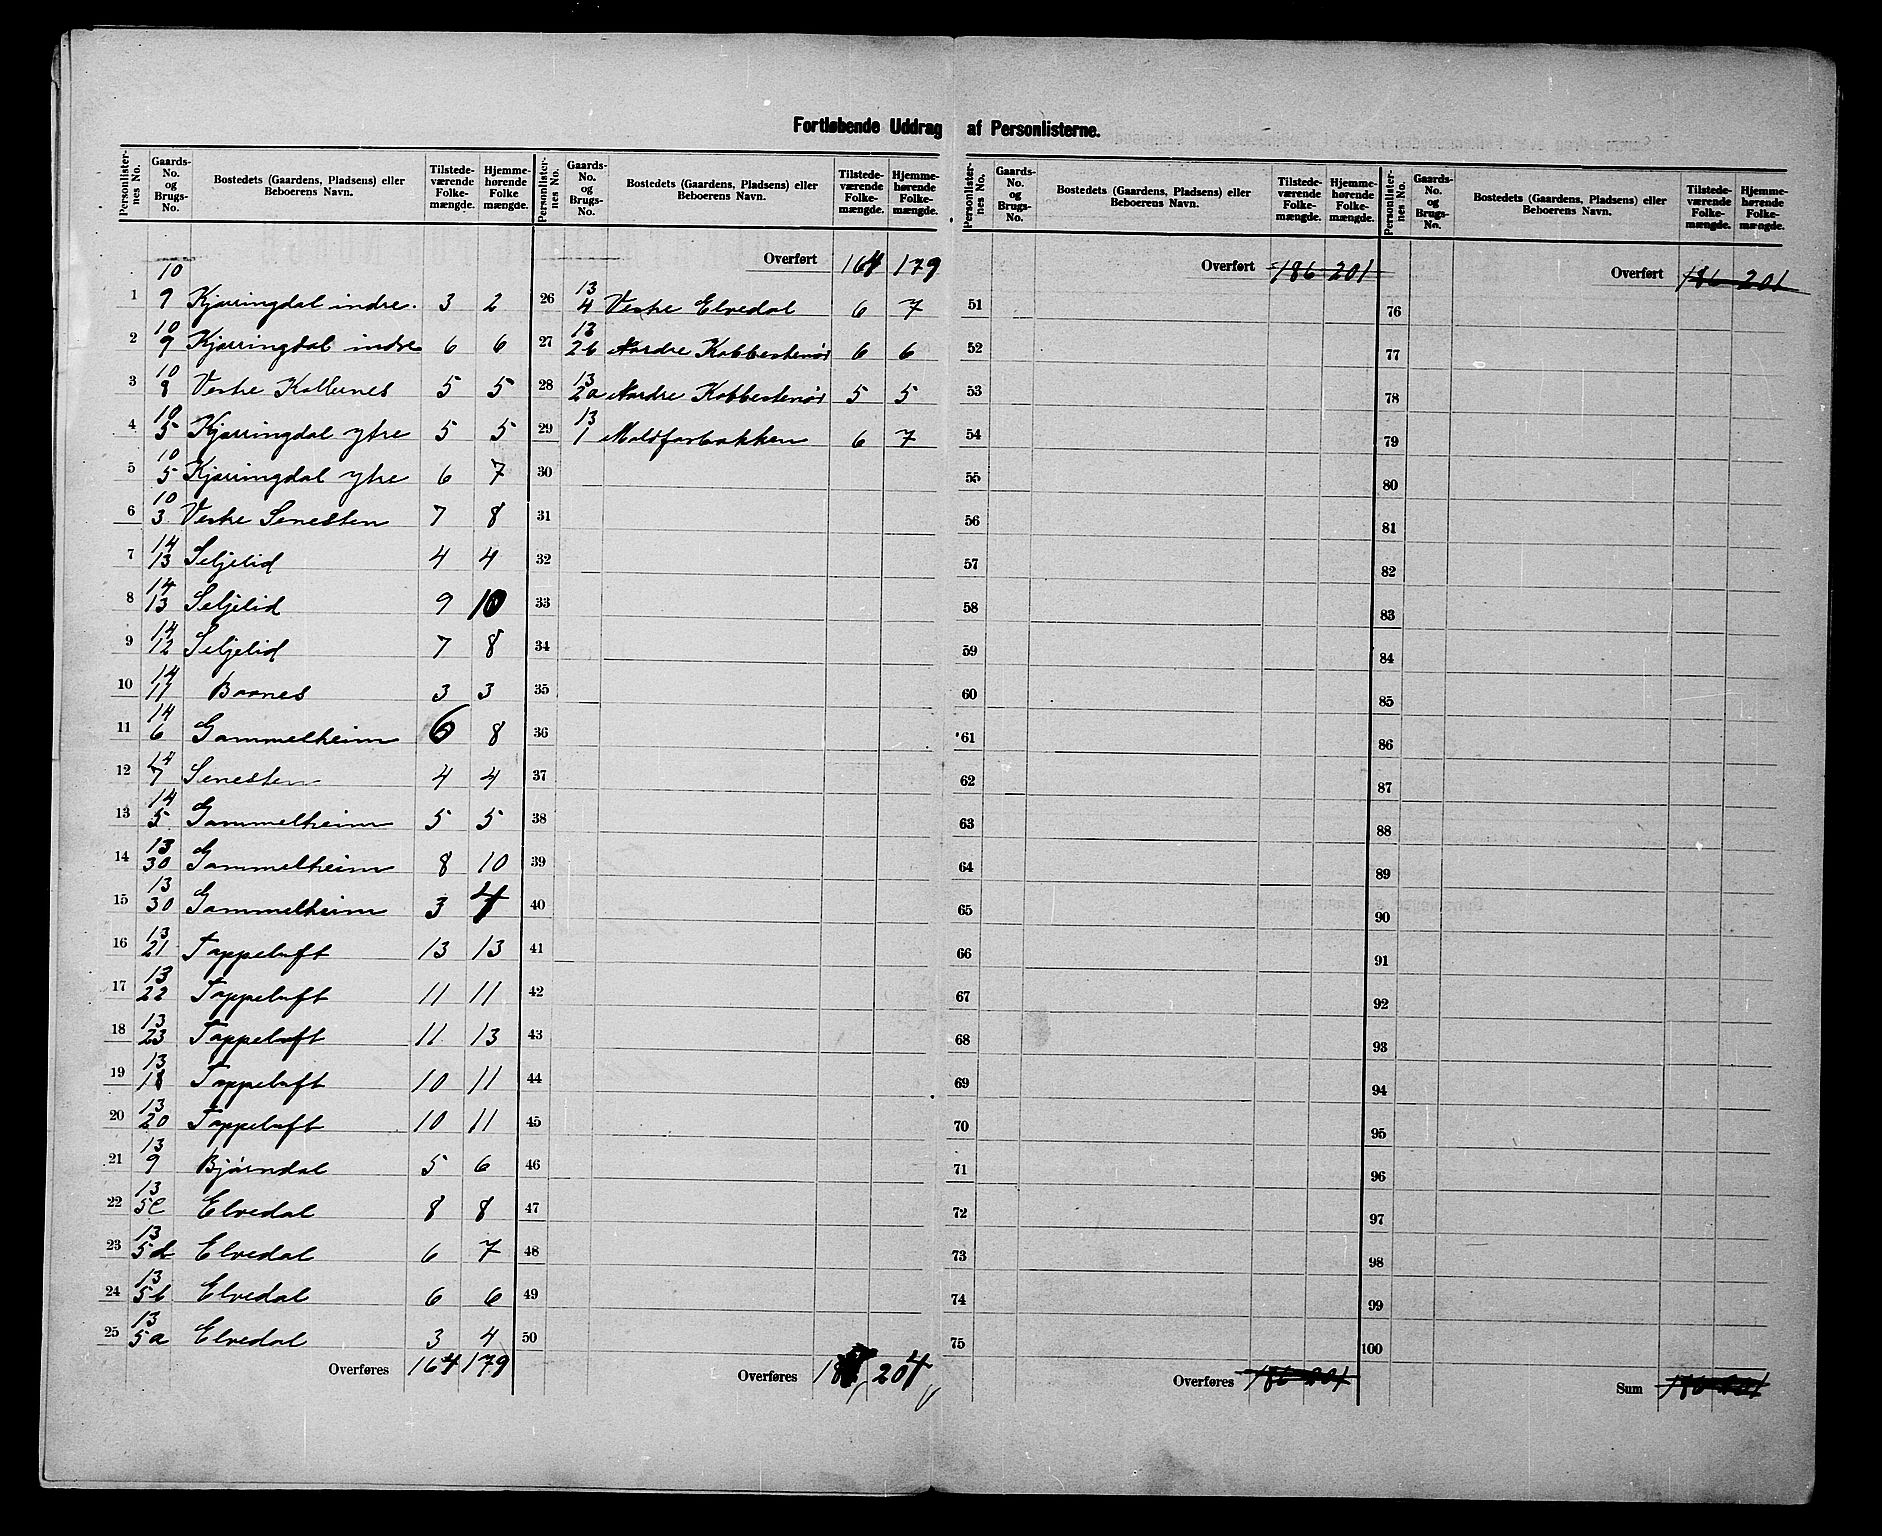 Fortløbende Uddrag af Personlisterne.
Personlister-nes No. | Gaards-No. og Brugs-No. | Bostedets (Gaardens, Pladsens) eller Beboerens Navn. | Tilstede-værende Folke-mængde. | Hjemme-hørende Folke mængde.
1 10/9 Kjærringdal indre. 3 2
2 10/9 Kjærringdal indre 6 6
3 10/8 Vestre Kallunes 5 5
4 10/5 Kjærringdal ytre 5 5
5 10/5 Kjærringdal ytre 6 7
6 10/3 Vestre Senesten 7 8
7 14/13 Seljelid 4 4
8 14/13 Seljelid 9 10
9 14/12 Seljelid 7 8
10 14/11 Baanes 3 3
11 14/6 Gammelheim 6 8
12 14/7 Senesten 4 4
13 14/5 Gammelheim 5 5
14 13/30 Gammelheim 8 10
15 13/30 Gammelheim 3 4
16 13/21 Tappeluft 13 13
17 13/22 Tappeluft 11 11
18 13/23 Tappeluft 11 13
19 13/18 Tappeluft 10 11
20 13/20 Tappeluft 10 11
21 13/9 Bjørndal 5 6
22 13/5c Elvedal 8 8
23 13/5d Elvedal 6 7
24 13/5b Elvedal 6 6
25 13/5a Elvedal 3 4
Overføres 164 179
Personlister-nes No. | Gaards-No. og Brugs-No. | Bostedets (Gaardens, Pladsens) eller Beboerens Navn. | Tilstede-værende Folke-mængde. | Hjemme-hørende Folke-mængde.
Overført 164 179
26 13/4 Vestre Elvedal 6 7
27 13/2b Nordre Kobbestenør 6 6
28 13/2a Nordre Kobbestenør 5 5
29 13/1 6 7
30
31
32
33
34
35
36
37
38
39
40
41
42
43
44
45
46
47
48
49
50
Overføres 204
Personlister-nes No. | Gaards-No. og Brugs-No. | Bostedets (Gaardens, Pladsens) eller Beboerens Navn. | Tilstede-værende Folke-mængde. | Hjemme-hørende Folke-mængde.
Overført 186 201
51
52
53
54
55
56
57
58
59
60
61
62
63
64
65
66
67
68
69
70
71
72
73
74
75
Overføres 186 201
Personlister-nes No. | Gaards-No. og Brugs-No. | Bostedets (Gaardens, Pladsens) eller Beboerens Navn. | Tilstede-værende Folke-mængde. | Hjemme-hørende Folke-mængde.
Overført 186 201
76
77
78
79
80
81
82
83
84
85
86
87
88
89
90
91
92
93
94
95
96
97
98
99
100
Sum 186 201